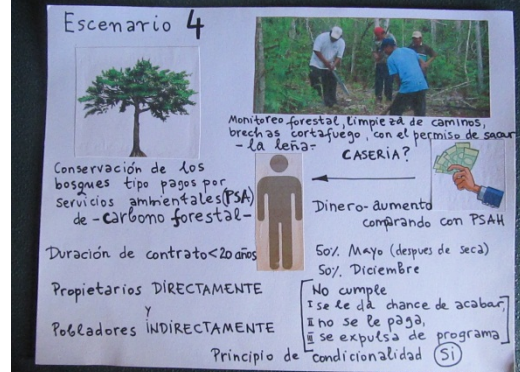 Escenario 4
Monitoreo forestal, limpieza de caminos,
brechas cortafuego, con el permiso de sacar
-la leña-
CASERIA?
Conservación de los
bosques tipo pagos por
servicios ambientales (PSA)
de -carbono forestal-
Dinero-aumento
comparando con PSAH
Duración de contrato <20 años
50% Mayo (despues de seca)
50% Diciembre
Propietarios DIRECTAMENTE
y
Pobladores INDIRECTAMENTE
No cumple
I se le da chance de acabar,
II no se le paga,
III se expulsa de programa
Principio de condicionalidad Si